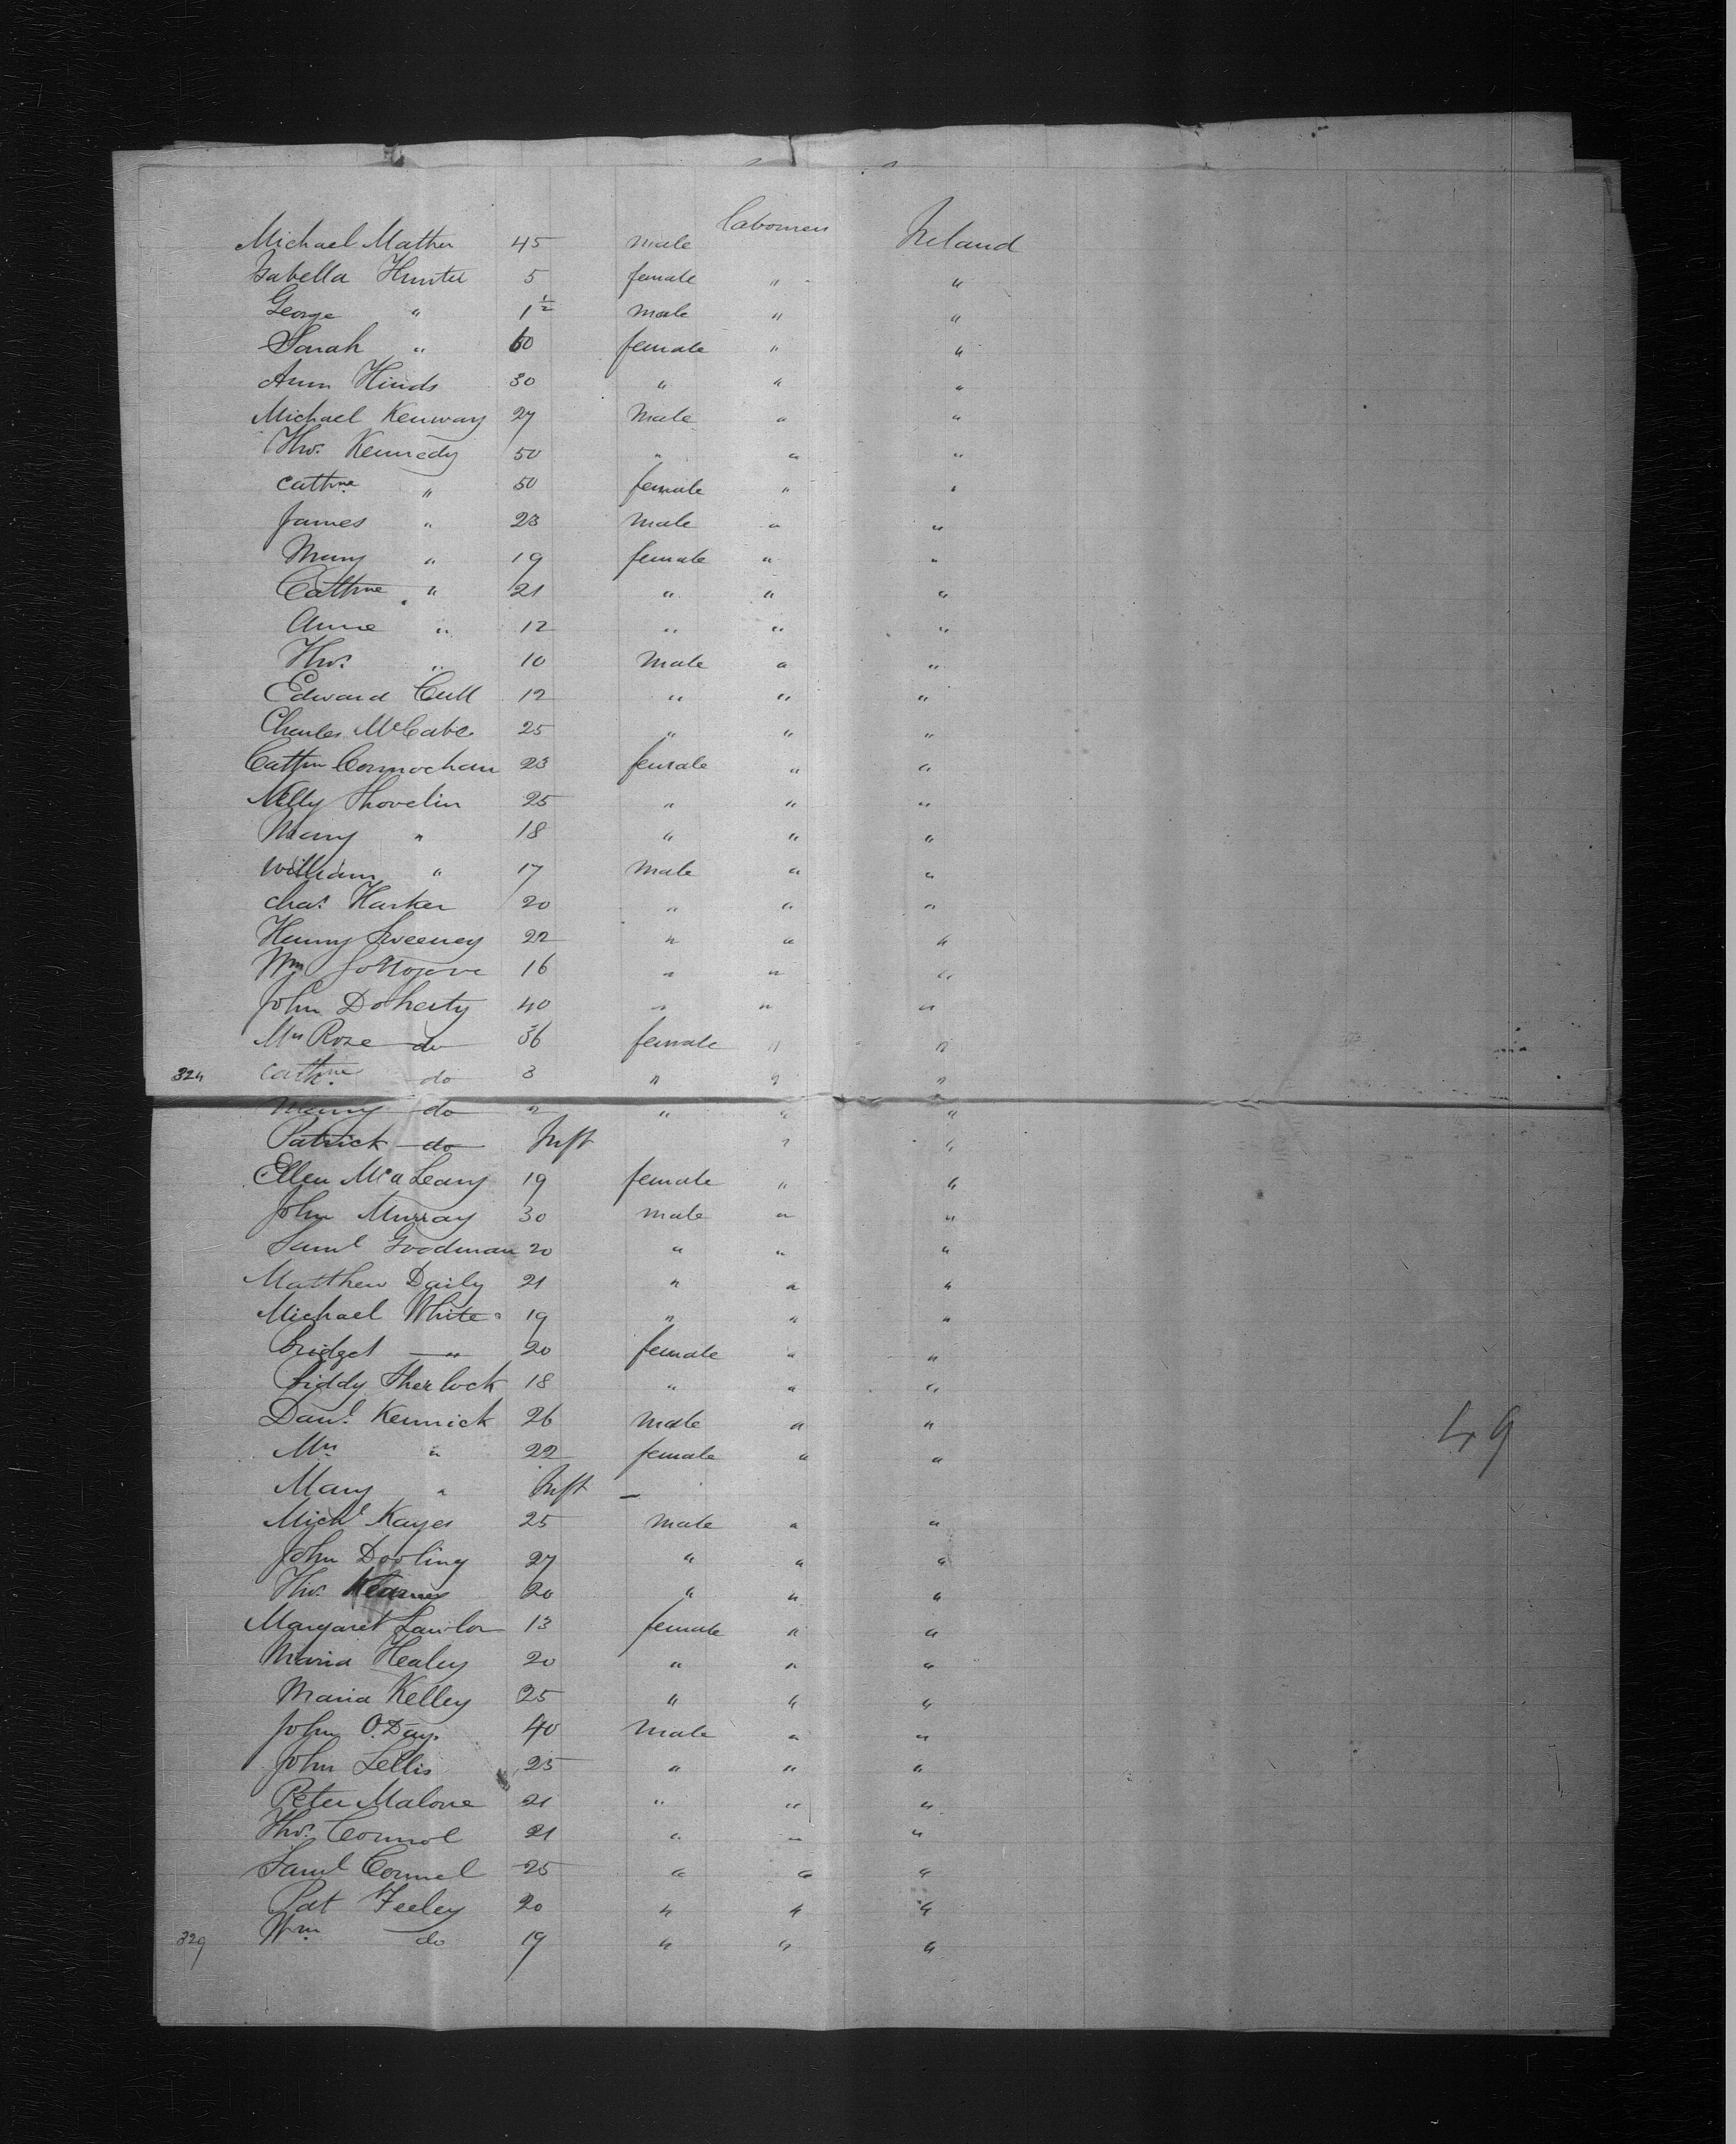 Michael Mather 45 male labourers Ireland
Isabella Hunter 5 female " "
George " 1 1/2 male " "
Sarah " 60 female " "
Ann Hinds 30 " " "
Michael Kenway 27 Male " "
Thos. Kennedy 50 " " "
Cathne " 50 female " "
James " 23 male " "
Mary " 19 female " "
Cathne " 21 " " "
Anne " 12 " " "
Thos. " 10 Male " "
Edward Cull 12 " " "
Charles McCabe 25 " " "
Cathn Connochan 23 female " "
Nelly Shovelin 25 " " "
Mary " 18 " " "
William " 17 Male " "
Chas. Harker 20 " " "
Henry Sweeney 22 " " "
Wm 16 " " "
John Doherty 40 " " "
Mrs Rose do 36 female " "
324 Cathne. do 3 " " "
Mary do " " " "
Patrick do Inft " "
Ellen McaLeary 19 female " "
John Murray 30 male " "
Saml Goodman 20 " " "
Matthew Daily 21 " " "
Michael White 19 " " "
Bridget — " 20 female " "
Biddy Sherlock 18 " " "
Danl. Kennick 26 male " "
Mrs " 22 female " "
Mary " Inft —
Michl Kayes 25 male " "
John Dooling 27 " " "
Thos. Kearney 20 " " "
Margaret Lawlor 13 female " "
Maria Healey 20 " " "
Maria Kelley 25 " " "
John O.Day. 40 Male " "
John Lellis 25 " " "
Peter Malone 21 " " "
Thos. Connol 21 " " "
Saml Connel 25 " " "
Pat Feeley 20 " " "
329 Wm do 19 " " "
49